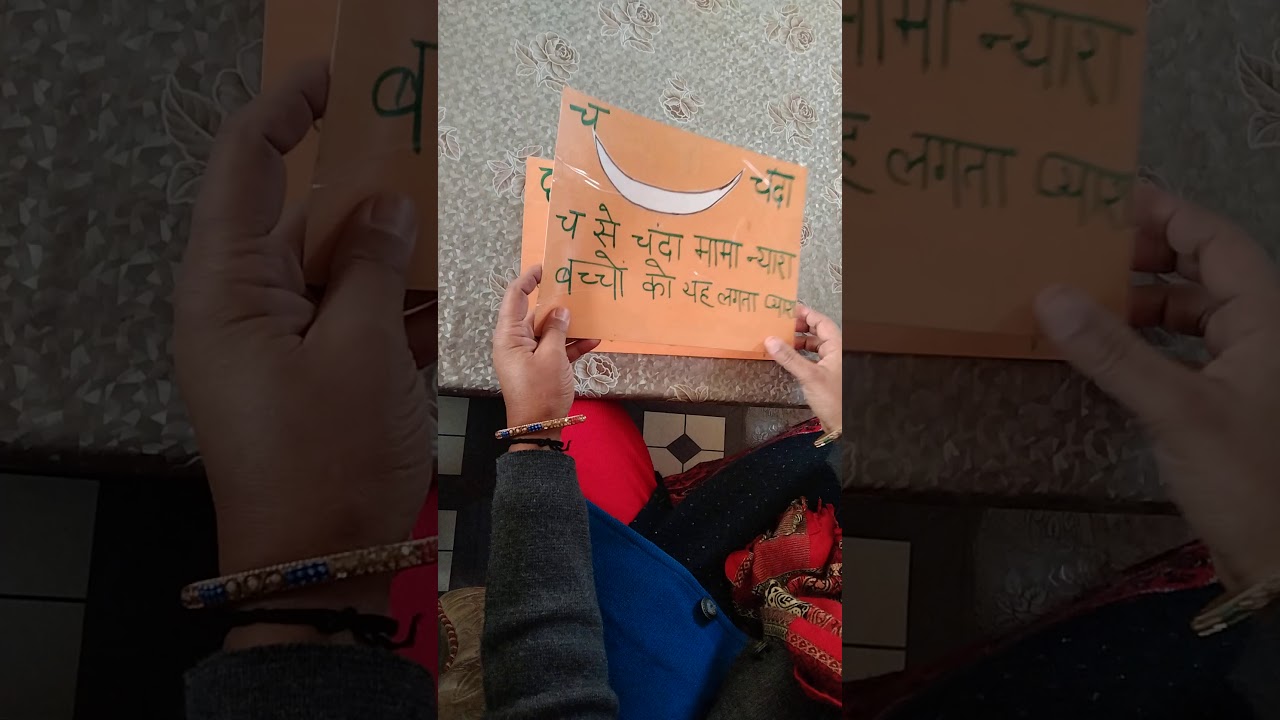 च
चंदा
च से चंदा मामा न्यारा
बच्चों को यह लगता प्यारा